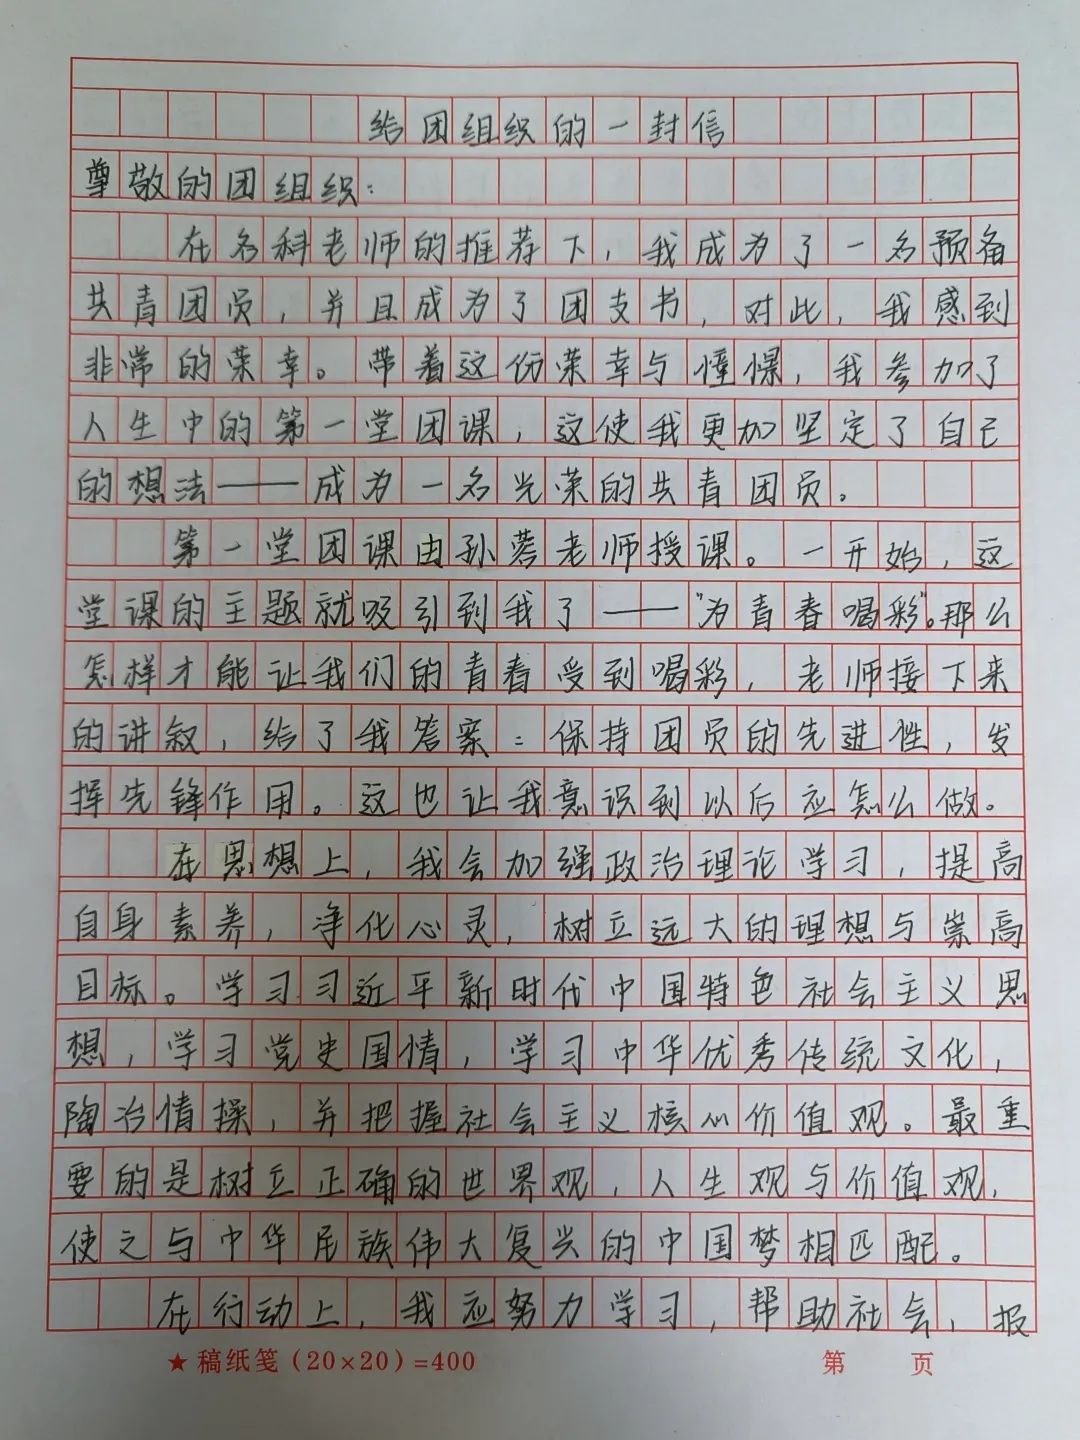 给团组织的一封信
尊敬的团组织：
在各科老师的推荐下，我成为了一名预备
共青团员，并且成为了团支书，对此，我感到
非常的荣幸。带着这份荣幸与憧憬，我参加了
人生中的第一堂团课，这使我更加坚定了自己
的想法——成为一名光荣的共青团员。
第一堂团课由孙蓉老师授课。一开始，这
堂课的主题就吸引到我了——“为青春喝彩”。那么
怎样才能让我们的青春受到喝彩，老师接下来
的讲叙，给了我答案：保持团员的先进性，发
挥先锋作用。这也让我意识到以后应怎么做。
在思想上，我会加强政治理论学习，提高
自身素养，净化心灵，树立远大的理想与崇高
目标。学习习近平新时代中国特色社会主义思
想，学习党史国情，学习中华优秀传统文化，
陶冶情操，并把握社会主义核心价值观。最重
要的是树立正确的世界观，人生观与价值观，
使之与中华民族伟大复兴的中国梦相匹配。
在行动上，我应努力学习，帮助社会，报
★稿纸笺(20×20)=400 第 页